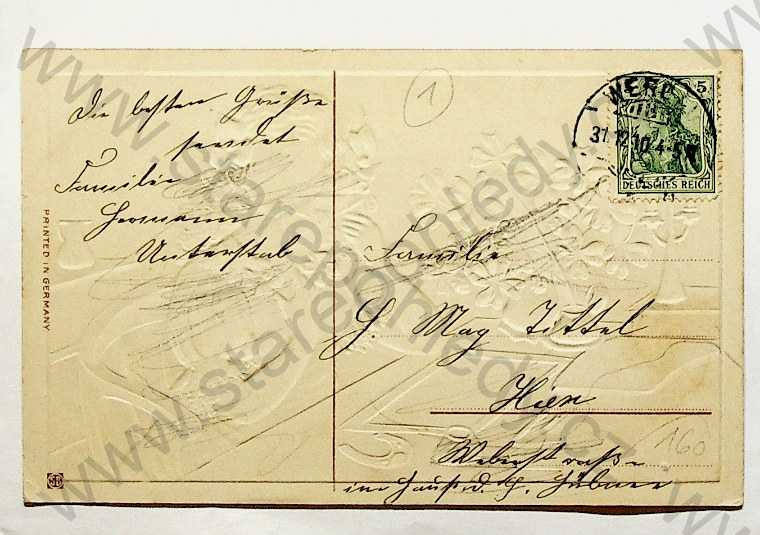 Die besten Grüße
sendet
Familie
Hermann
Unterstab
1
WERD
31.12.10.4-5N
5
DEUTSCHES REICH
PRINTED IN GERMANY
Familie
H. Max Tittel
Hier
Weberstraße
im Hause d. H. Hübner
160
www.starepohledy.cz